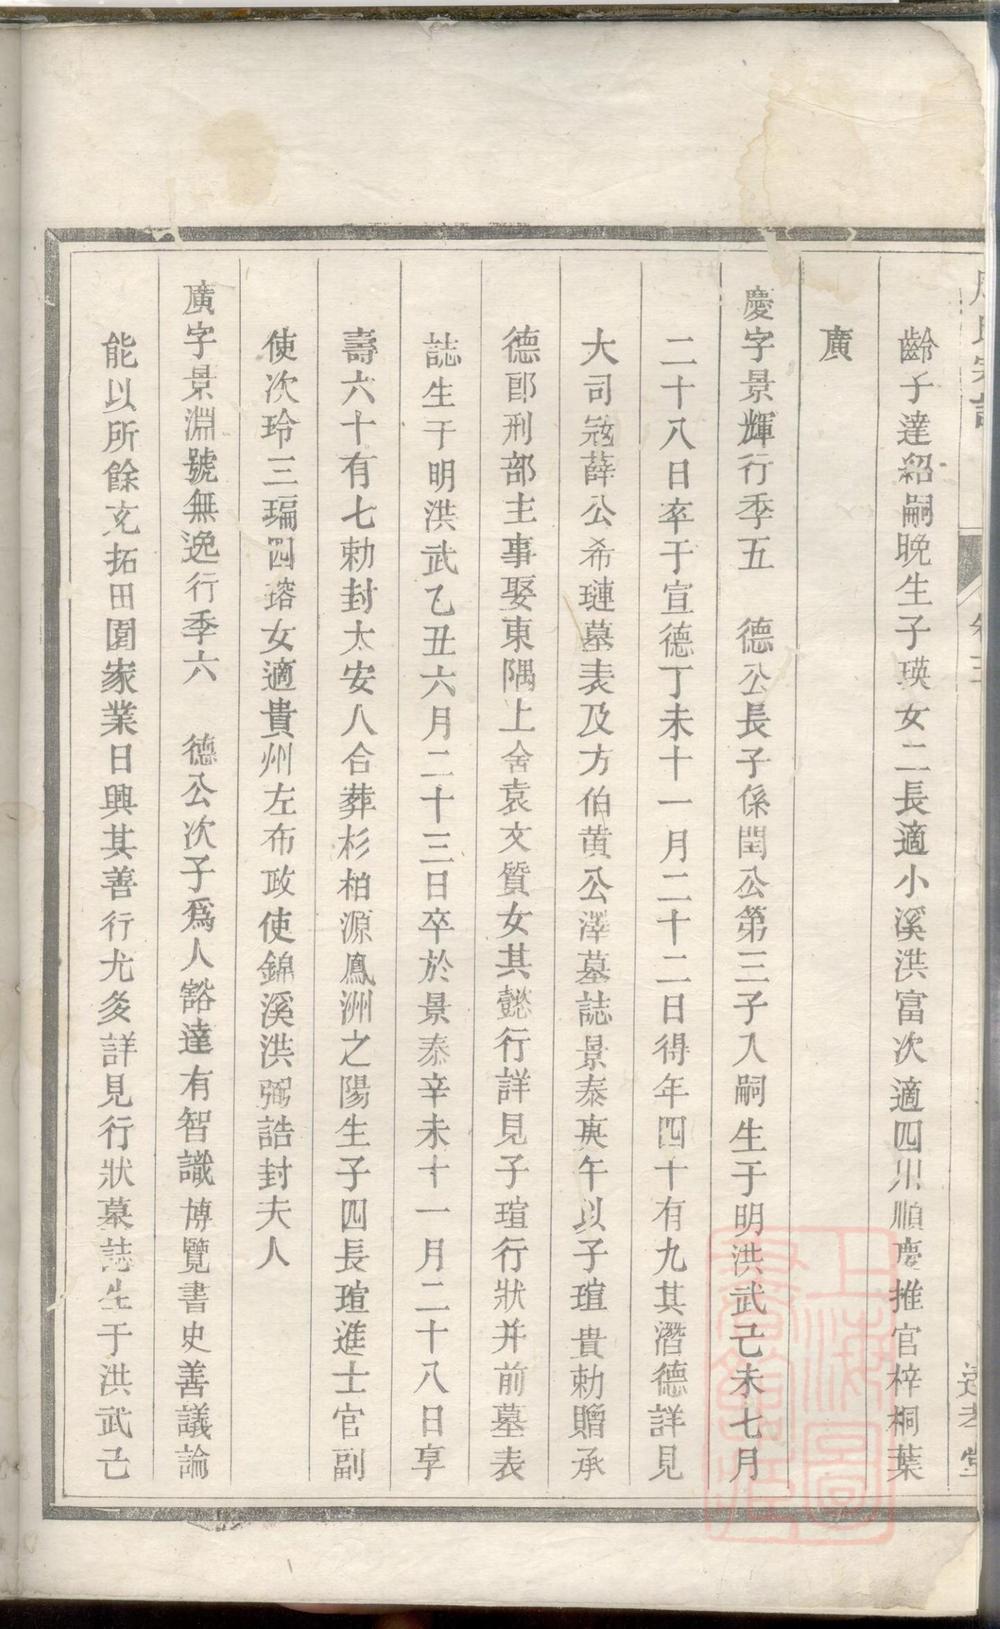 齡子達紹嗣晚生子瑛女二長適小溪洪富次適四川順慶推官梓桐葉
廣
慶字景輝行季五 德公長子係閏公第三子入嗣生于明洪武己未七月
二十八日卒于宣德丁未十一月二十二日得年四十有九其潛德詳見
大司寇薛公希璉墓表及方伯黄公澤墓誌景泰庚午以子瑄貴勅贈承
德郎刑部主事娶東隅上舍袁文質女其懿行詳見子瑄行狀并前墓表
誌生于明洪武乙丑六月二十三日卒於景泰辛未十一月二十八日享
壽六十有七勅封太安人合葬杉柏源鳳洲之陽生子四長瑄進士官副
使次玲三瑞四瑢女適貴州左布政使錦溪洪弼誥封夫人
廣字景淵號無逸行季六 德公次子爲人豁達有智識博覽書史善議論
能以所餘充拓田園家業日興其善行尤多詳見行狀墓誌生于洪武己
上海圖書館藏